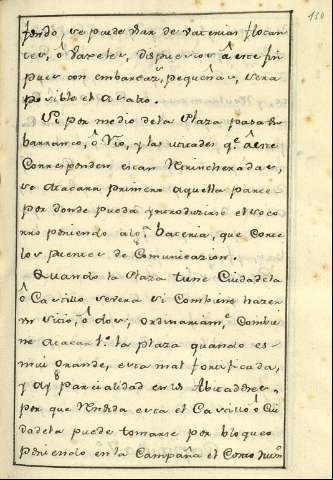 150
fondo, se puede usar de vaterias flotan
tes, ô Vaxeles, dispuestos â este fin
pues con embarcaz.s pequeñas, sera
posible el atako.
Si por medio dela Plaza pasa Un
barranco, ô Rio, y las Ciudades q.e â este
Corresponden estan Atrincheradas,
se Atacara primero aquella parte
por donde pueda introducirse el soco
rro poniendo alg.a bateria, que Corte
los puentes de Comunicazion.
Quando la Plaza tiene Ciudadela
ô Castillo severa si Combiene hazer
un sitio, ô dos, ordinariam.e Combie
ne atacar 1.o la plaza quando es
mui Grande, esta mal fortificada,
y ay parcialidad en los
por que Rendida esta el Castillo ô Ciu
dadela puede tomarse por bloqueo
poniendo en la Campaña el